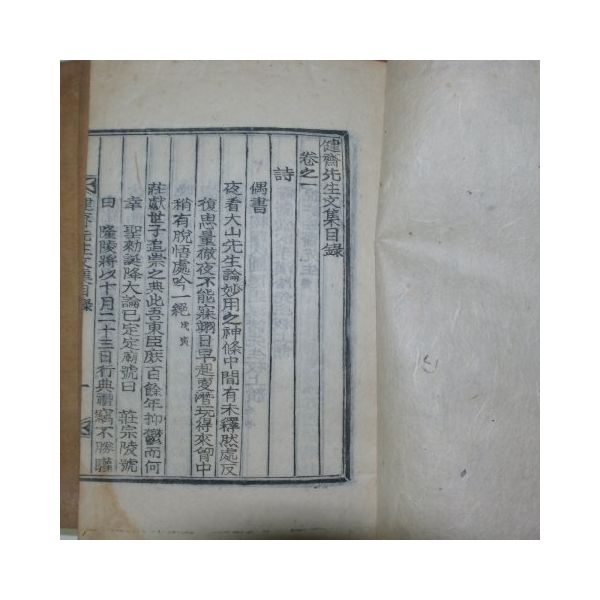 健齋先生文集目錄
卷之一
詩
偶書
夜看大山先生論妙用之神條中間有未釋然處反
復思量徹夜不能寐翌日早起更潛玩得來胷中
稍有脫悟處吟一絕 戊寅
莊獻世子追崇之典此吾東臣庶百餘年抑鬱而何
幸 聖勅誕降大論已定定廟號曰 莊宗陵號
曰 隆陵將以十月二十三日行典禮竊不勝
健齋先生文集目錄
一